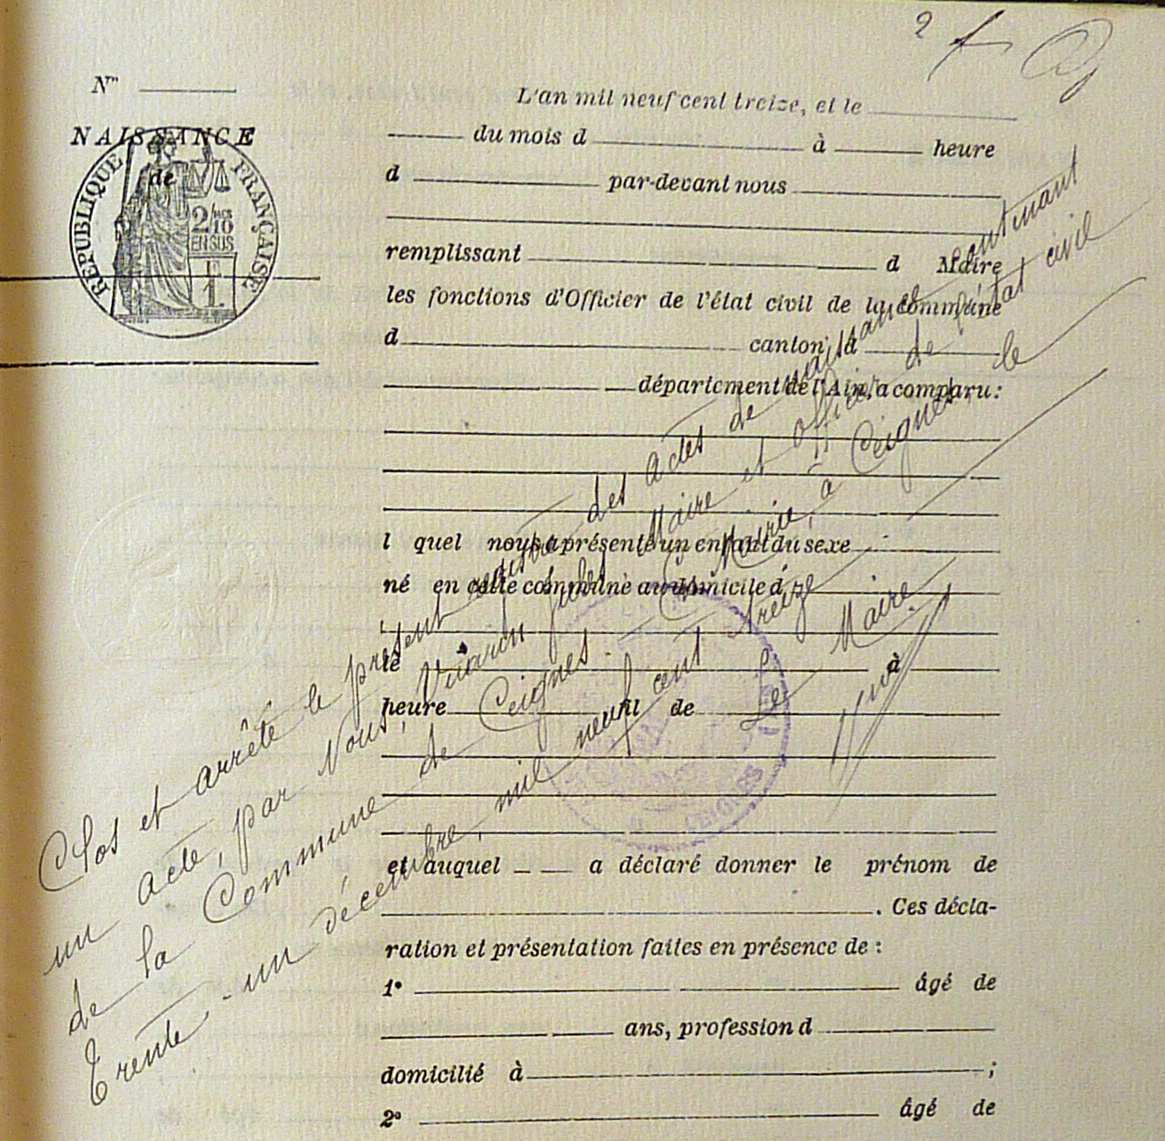 2 f
N°
NAISSANCE
de
RÉPUBLIQUE FRANÇAISE
2/10
EN SUS
L'an mil neuf cent treize, et le
du mois d à heure
d par-devant nous
remplissant d Maire
les fonctions d'Officier de l'état civil de la commune
d canton d
département de l'Ain, a comparu:
l quel nous a présenté un enfant du sexe
né en cette commune au domicile d
le à
heure fil de
et auquel a déclaré donner le prénom de
. Ces décla-
ration et présentation faites en présence de :
1° âgé de
ans, profession d
domicilié à ;
2° âgé de
Clos et arrêté le présent registre des actes de naissance contenant
un acte, par Nous, Jules Maire et officier de l'état civil
de la Commune de Ceignes. En Mairie, à Ceignes, le
Trente-un décembre, mil neuf cent treize
Le Maire,
CEIGNES